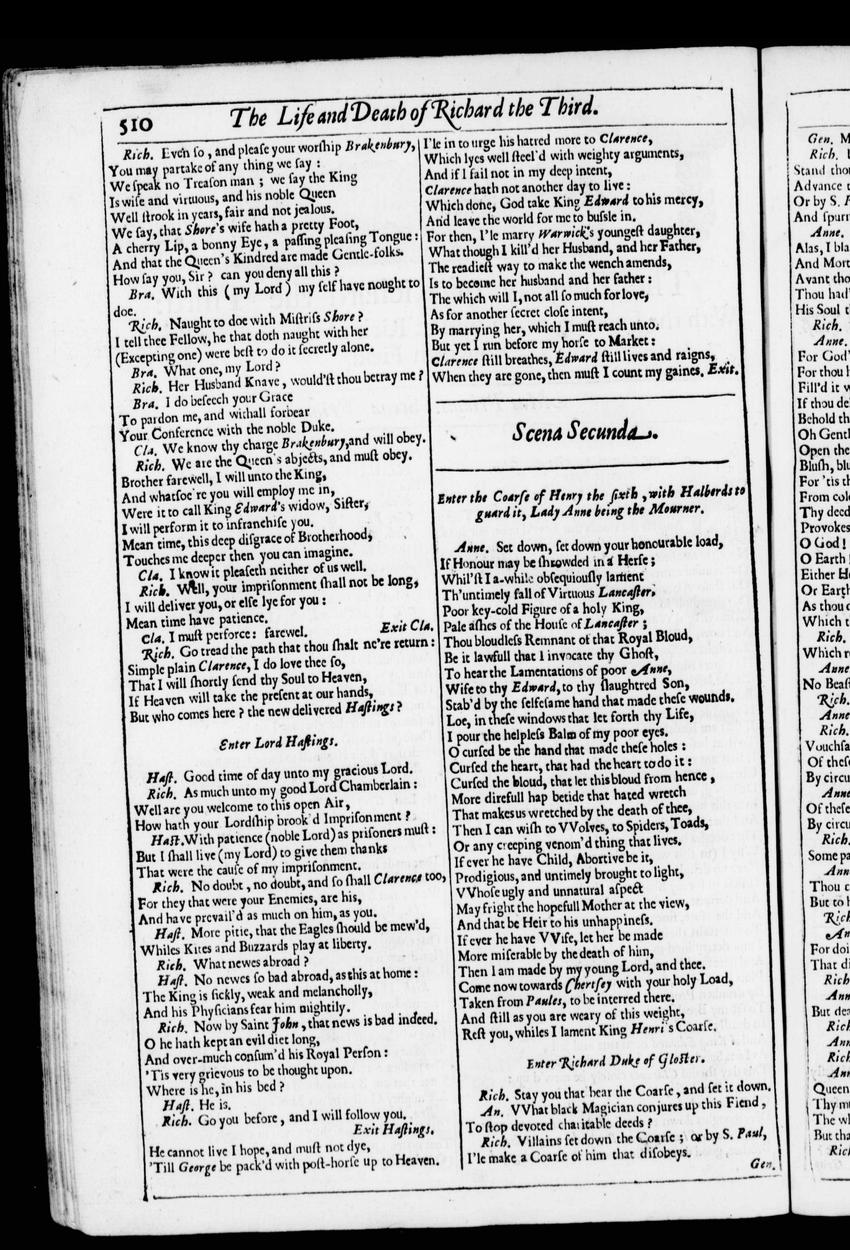 510
The Life and Death of Richard the Third.
Rich. Even ſo, and pleaſe your worſhip Brakenbury,
You may partake of any thing we ſay:
We ſpeak no Treaſon man; we ſay the King
Is wiſe and virtuous, and his noble Queen
Well ſtrook in years, fair and not jealous.
We ſay, that Shore's wife hath a pretty Foot,
A cherry Lip, a bonny Eye, a paſſing pleaſing Tongue:
And that the Queen's Kindred are made Gentle-folks.
How ſay you, Sir? can you deny all this?
Bra. With this (my Lord) my ſelf have nought to
doe.
Rich. Naught to doe with Miſtriſs Shore?
I tell thee Fellow, he that doth naught with her
(Excepting one) were beſt to do it ſecretly alone.
Bra. What one, my Lord?
Rich. Her Husband Knave, would'ſt thou betray me?
Bra. I do beſeech your Grace
To pardon me, and withall forbear
Your Conference with the noble Duke.
Cla. We know thy charge Brakenbury, and will obey.
Rich. We are the Queen's abjects, and muſt obey.
Brother farewell, I will unto the King,
And whatſoe're you will employ me in,
Were it to call King Edward's widow, Siſter,
I will perform it to infranchiſe you.
Mean time, this deep diſgrace of Brotherhood,
Touches me deeper then you can imagine.
Cla. I know it pleaſeth neither of us well.
Rich. Well, your impriſonment ſhall not be long,
I will deliver you, or elſe lye for you:
Mean time have patience.
Cla. I muſt perforce: farewel. Exit Cla.
Rich. Go tread the path that thou ſhalt ne're return:
Simple plain Clarence, I do love thee ſo,
That I will ſhortly ſend thy Soul to Heaven,
If Heaven will take the preſent at our hands,
But who comes here? the new delivered Haſtings?
Enter Lord Haſtings.
Haſt. Good time of day unto my gracious Lord.
Rich. As much unto my good Lord Chamberlain:
Well are you welcome to this open Air,
How hath your Lordſhip brook'd Impriſonment?
Haſt. With patience (noble Lord) as priſoners muſt:
But I ſhall live (my Lord) to give them thanks
That were the cauſe of my impriſonment.
Rich. No doubt, no doubt, and ſo ſhall Clarence too,
For they that were your Enemies, are his,
And have prevail'd as much on him, as you.
Haſt. More pitie, that the Eagles ſhould be mew'd,
Whiles Kites and Buzzards play at liberty.
Rich. What newes abroad?
Haſt. No newes ſo bad abroad, as this at home:
The King is ſickly, weak and melancholly,
And his Phyſicians fear him mightily.
Rich. Now by Saint John, that news is bad indeed.
O he hath kept an evil diet long,
And over-much conſum'd his Royal Perſon:
'Tis very grievous to be thought upon.
Where is he, in his bed?
Haſt. He is.
Rich. Go you before, and I will follow you.
Exit Haſtings.
He cannot live I hope, and muſt not dye,
'Till George be pack'd with poſt-horſe up to Heaven.
I'le in to urge his hatred more to Clarence,
Which lyes well ſteel'd with weighty arguments,
And if I fail not in my deep intent,
Clarence hath not another day to live:
Which done, God take King Edward to his mercy,
And leave the world for me to buſsle in.
For then, I'le marry Warwick's youngeſt daughter,
What though I kill'd her Husband, and her Father,
The readieſt way to make the wench amends,
Is to become her husband and her father:
The which will I, not all ſo much for love,
As for another ſecret cloſe intent,
By marrying her, which I muſt reach unto.
But yet I run before my horſe to Market:
Clarence ſtill breathes, Edward ſtill lives and raigns,
When they are gone, then muſt I count my gaines. Exit.
Scena Secunda.
Enter the Coarſe of Henry the ſixth, with Halberds to
guard it, Lady Anne being the Mourner.
Anne. Set down, ſet down your honourable load,
If Honour may be ſhrowded in a Herſe;
Whil'ſt I a-while obſequiouſly lament
Th'untimely fall of Virtuous Lancaſter.
Poor key-cold Figure of a holy King,
Pale aſhes of the Houſe of Lancaſter;
Thou bloudleſs Remnant of that Royal Bloud,
Be it lawfull that I invocate thy Ghoſt,
To hear the Lamentations of poor Anne,
Wife to thy Edward, to thy ſlaughtred Son,
Stab'd by the ſelfeſame hand that made theſe wounds.
Loe, in theſe windows that let forth thy Life,
I pour the helpleſs Balm of my poor eyes.
O curſed be the hand that made theſe holes:
Curſed the heart, that had the heart to do it:
Curſed the bloud, that let this bloud from hence,
More direfull hap betide that hated wretch
That makes us wretched by the death of thee,
Then I can wiſh to VVolves, to Spiders, Toads,
Or any creeping venom'd thing that lives.
If ever he have Child, Abortive be it,
Prodigious, and untimely brought to light,
VVhoſe ugly and unnatural aſpect
May fright the hopefull Mother at the view,
And that be Heir to his unhappineſs.
If ever he have VVife, let her be made
More miſerable by the death of him,
Then I am made by my young Lord, and thee.
Come now towards Chertſey with your holy Load,
Taken from Paules, to be interred there.
And ſtill as you are weary of this weight,
Reſt you, whiles I lament King Henri's Coarſe.
Enter Richard Duke of Gloſter.
Rich. Stay you that bear the Coarſe, and ſet it down.
An. VVhat black Magician conjures up this Fiend,
To ſtop devoted charitable deeds?
Rich. Villains ſet down the Coarſe; or by S. Paul,
I'le make a Coarſe of him that diſobeys.
Gen.
Gen.
Rich.
Stand
Advance
Or by S.
And ſpurn
Anne.
Alas, I
And
Avant
Thou had
His Soul
Rich.
Anne.
For God'
For thou
Fill'd it
If thou
Behold
Oh
Open the
Bluſh,
For 'tis
From
Thy deed
Provokes
O God!
O Earth
Either
Or Earth
As thou
Which
Rich.
Which
Anne
No
Rich.
Anne
Rich.
Of theſe
By
Anne
Of theſe
By
Rich.
Some
Ann
Thou
But to
Rich
An
For
That
Rich
Ann
But
Rich
Ann
Rich
Ann
Queen
Thy
The
But
Rich